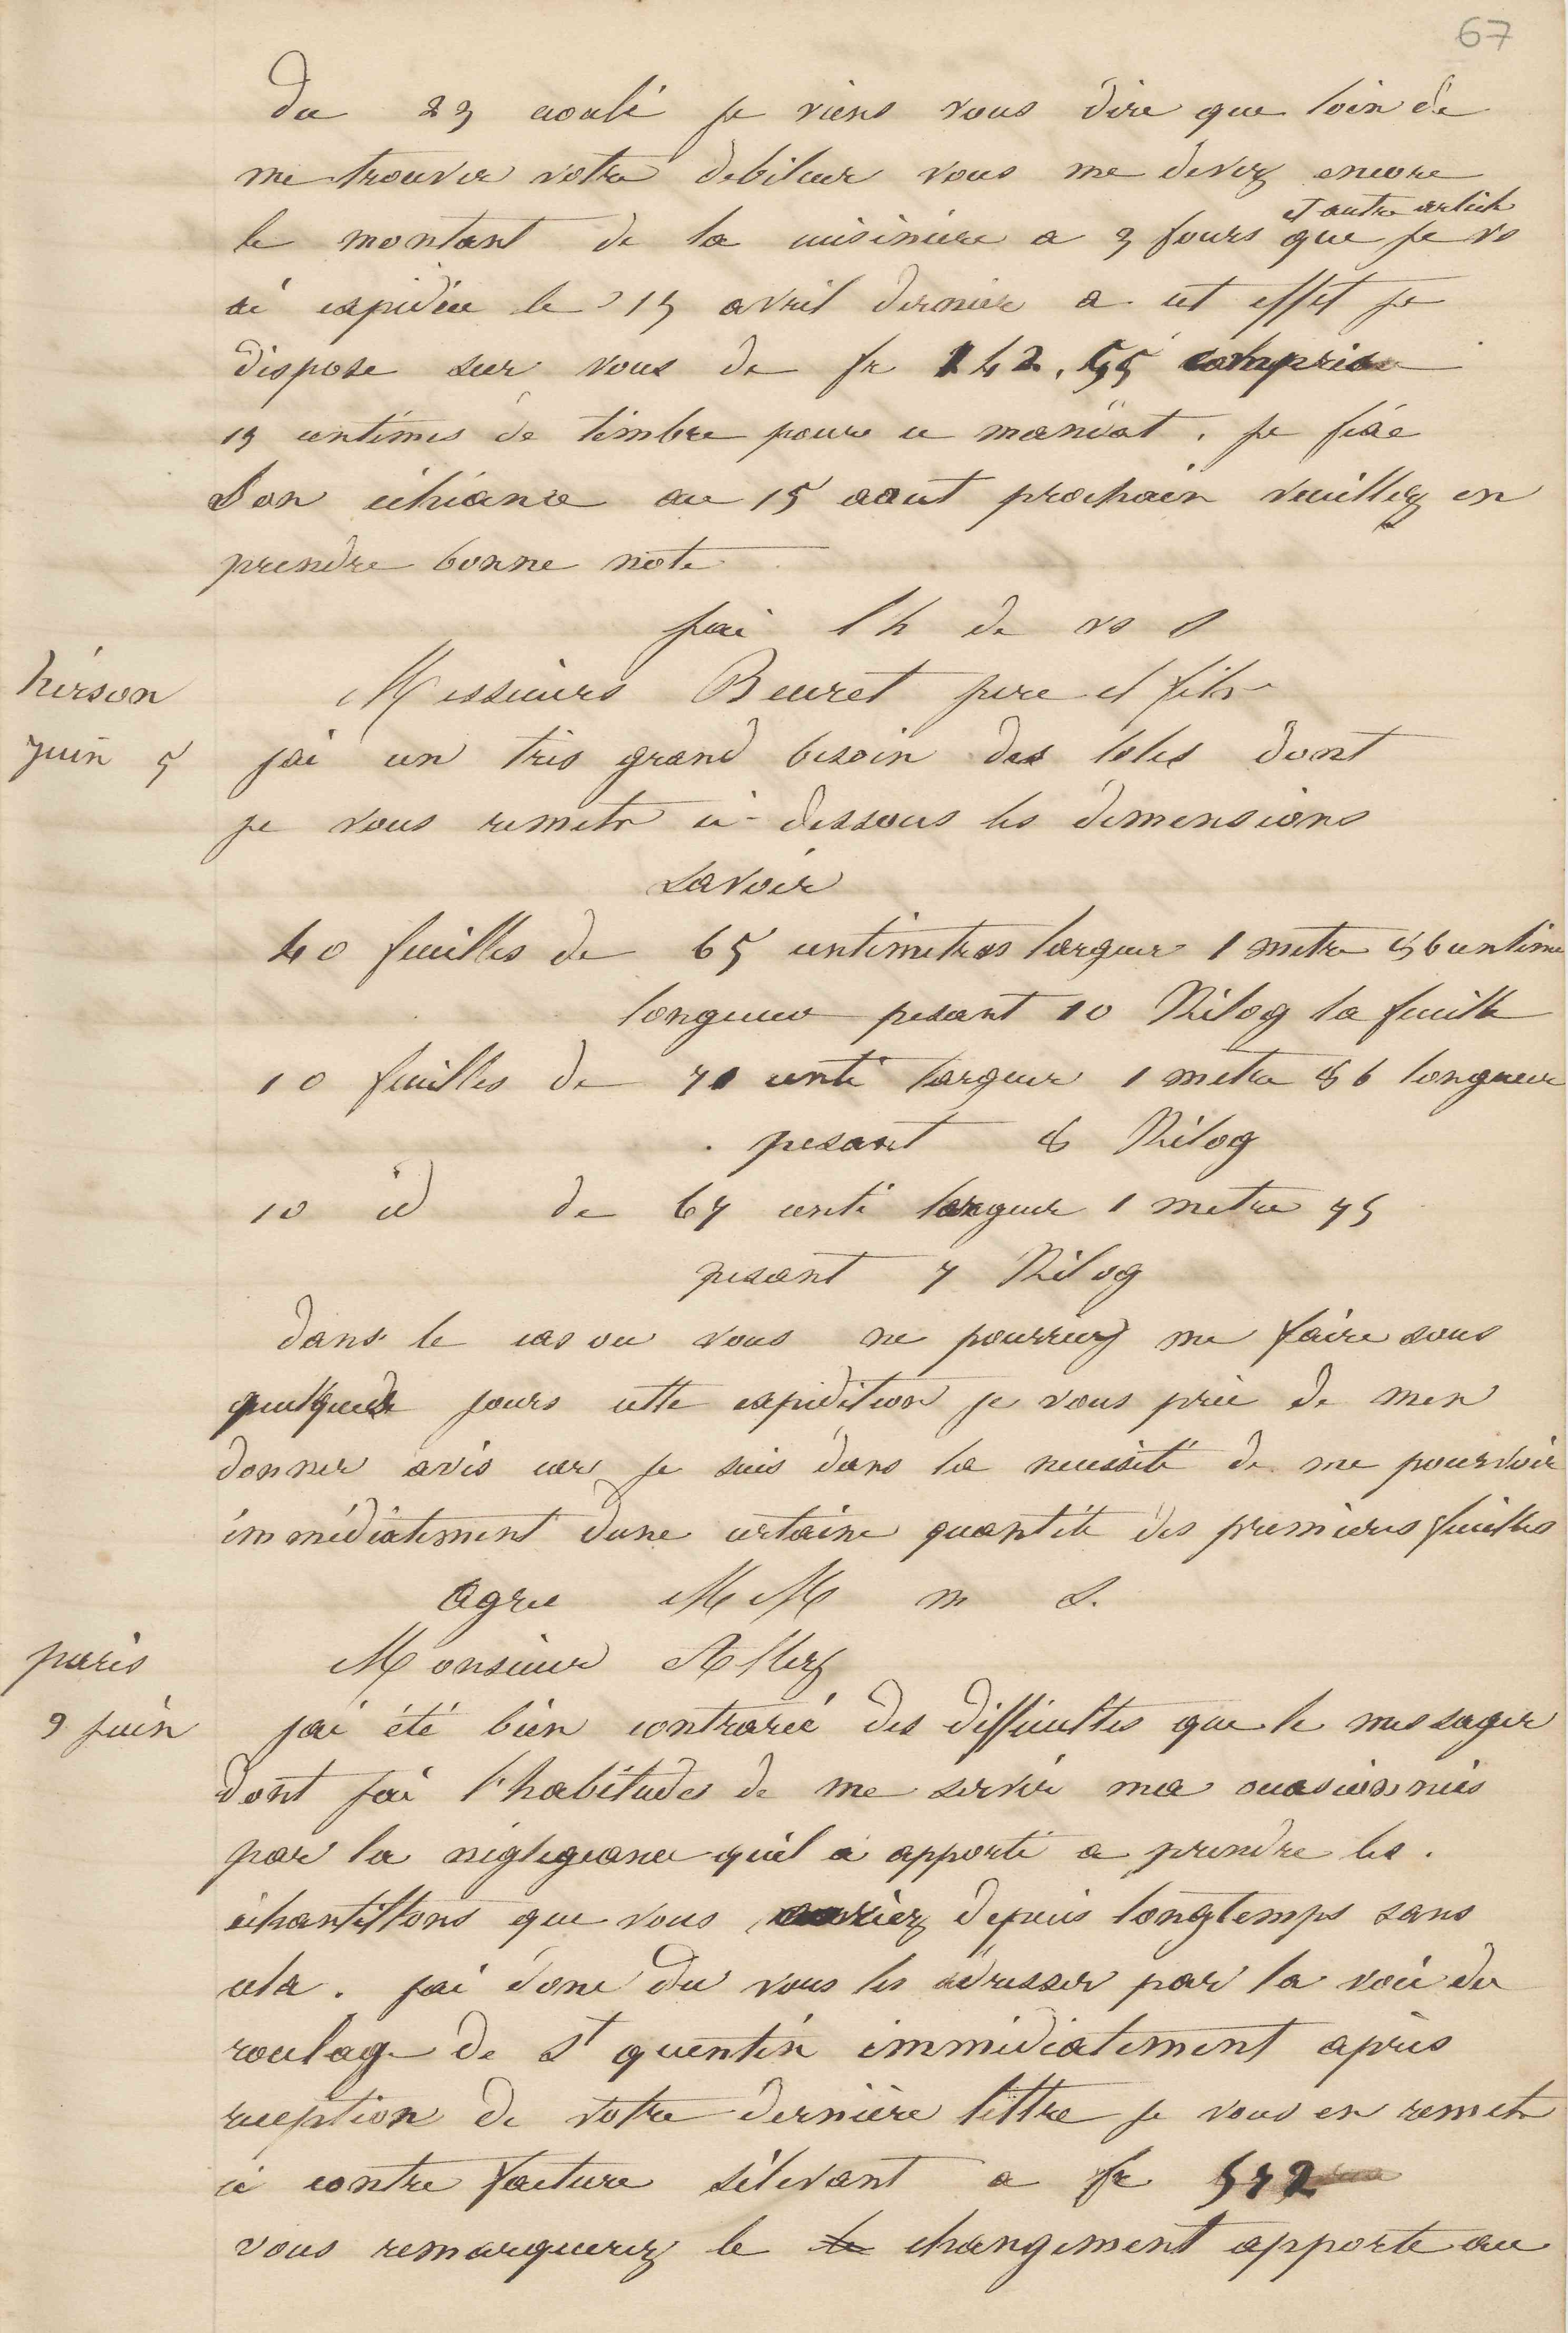 67
du 23 écoulé je viens vous dire que loin de
me trouver votre debiteur vous me devez encore
et autre article
le montant de la cuisinière a 3 fours que je vs
ai expédiée le 15 avril dernier a cet effet je
dispose sur vous de fr 142.55 compris
15 centimes de timbre pour ce mandat. je fixe
Son échéance au 15 aout prochain veuillez en
prendre bonne note
jai l h de vs s
hirson
Messieurs Beuret pere et fils
juin 5
jai un très grand besoin des toles dont
je vous remets ci-dessous les dimensions
savoir
40 feuilles de 65 centimetres largeur 1 metre 86 centime
longueur pesant 10 Kilog la feuille
10 feuilles de 71 centi largeur 1 metre 86 longueur
pesant 8 Kilog
10 id de 67 centi largeur 1 metre 75
pesant 7 Kilog
dans le cas ou vous ne pourriez me faire sous
quelques jours cette expédition je vous prie de men
donner avis car je suis dans la necessité de me pourvoir
immédiatement dune certaine quantité des premieres feuilles
agree MM m s.
paris
Monsieur Allez
9 juin
jai été bien contrarié des difficultes que le messager
dont jai l'habitudes de me servir ma occasionnés
par la négligeance quil a apporté a prendre les.
échantillons que vous auriez depuis longtemps sans
cela. jai donc du vous les adresser par la voie du
roulage de St quentin immédiatement après
reception de votre dernière lettre je vous en remets
ci contre facture sélevant a fr 572
vous remarquerez le le changement apporte au